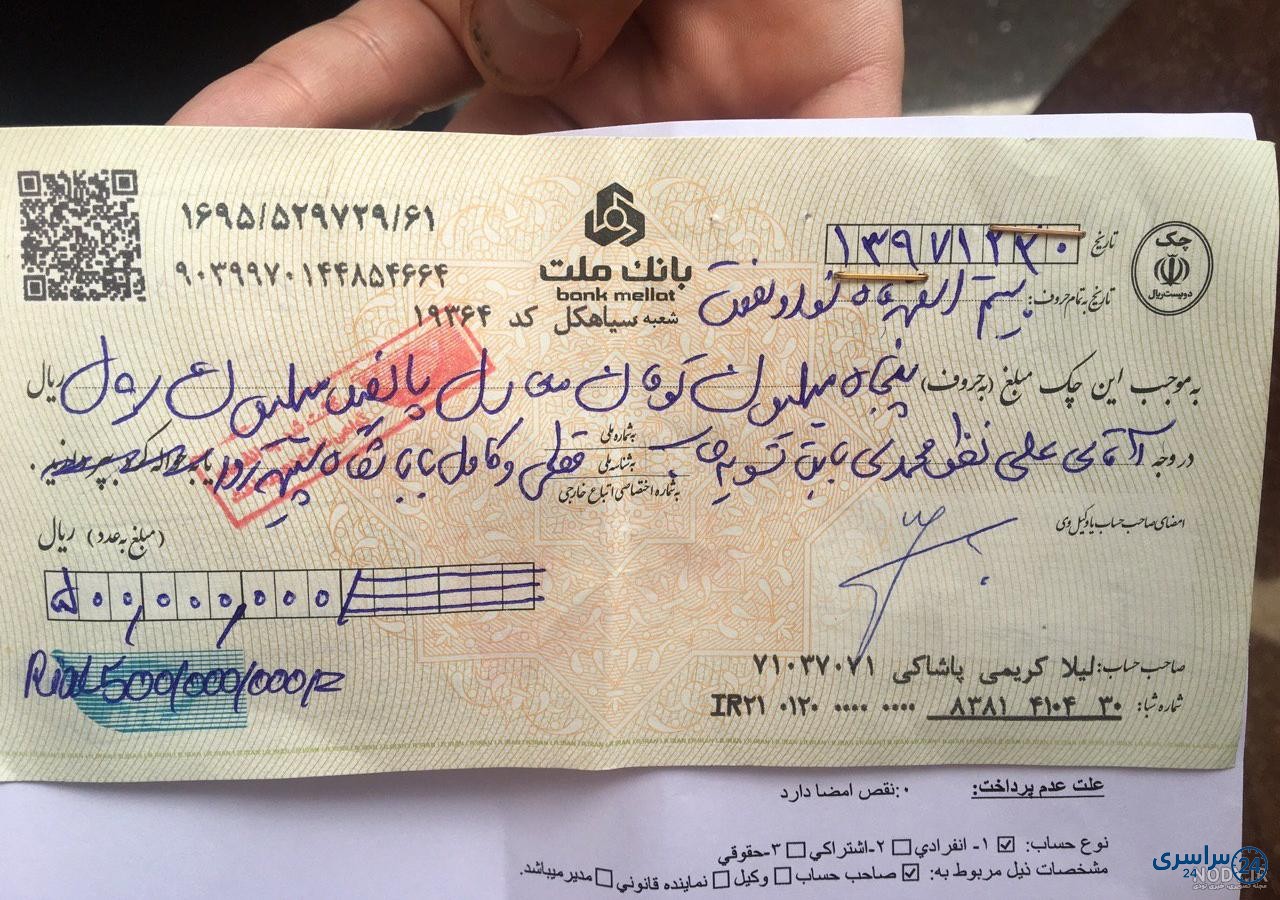 ۱۶۹۵/۵۲۹۷۲۹/۶۱
۹۰۳۹۹۷۰۱۴۴۸۵۴۶۶۴
بانک ملت
bank mellat
شعبه سیاهکل کد ۱۹۳۶۴
چک
دویست ریال
تاریخ ۱۳۹۷۱۲۲۰
تاریخ به تمام حروف: بیستم اسفند ماه نود و هفت
به موجب این چک مبلغ (به حروف) پنجاه میلیون تومان معادل پانصد میلیون ریال ریال
در وجه آقای علی محمدی بابت تسویه حساب قطعی و کامل بابا
به شماره ملی
به شناسه ملی
به شماره اختصاصی اتباع خارجی
امضای صاحب حساب یا وکیل وی
(مبلغ به عدد) ریال
۵۰۰,۰۰۰,۰۰۰/
Rial 500/000/000/R
صاحب حساب: لیلا کریمی پاشاکی ۷۱۰۳۷۰۷۱
شماره شبا: IR۲۱ ۰۱۲۰ ۰۰۰۰ ۰۰۰۰ ۸۳۸۱ ۴۱۰۴ ۳۰
علت عدم پرداخت: ۰:نقص امضا دارد
نوع حساب: ☑ ۱- انفرادي ☐ ۲-اشتراکي ☐ ۳-حقوقي
مشخصات ذیل مربوط به: ☑ صاحب حساب ☐ وکیل ☐ نماینده قانوني ☐ مدیرمیباشد.
سراسری 24
24
NODI.IR